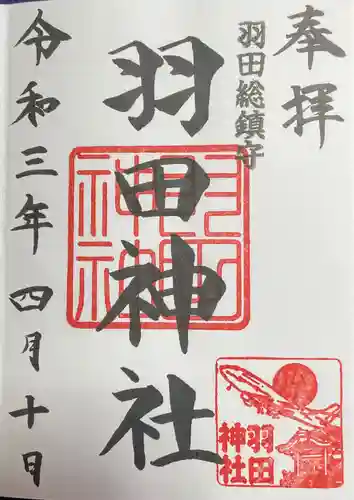 奉拝
羽田総鎮守
羽田神社
羽田神社
羽田
神社
令和三年四月十日